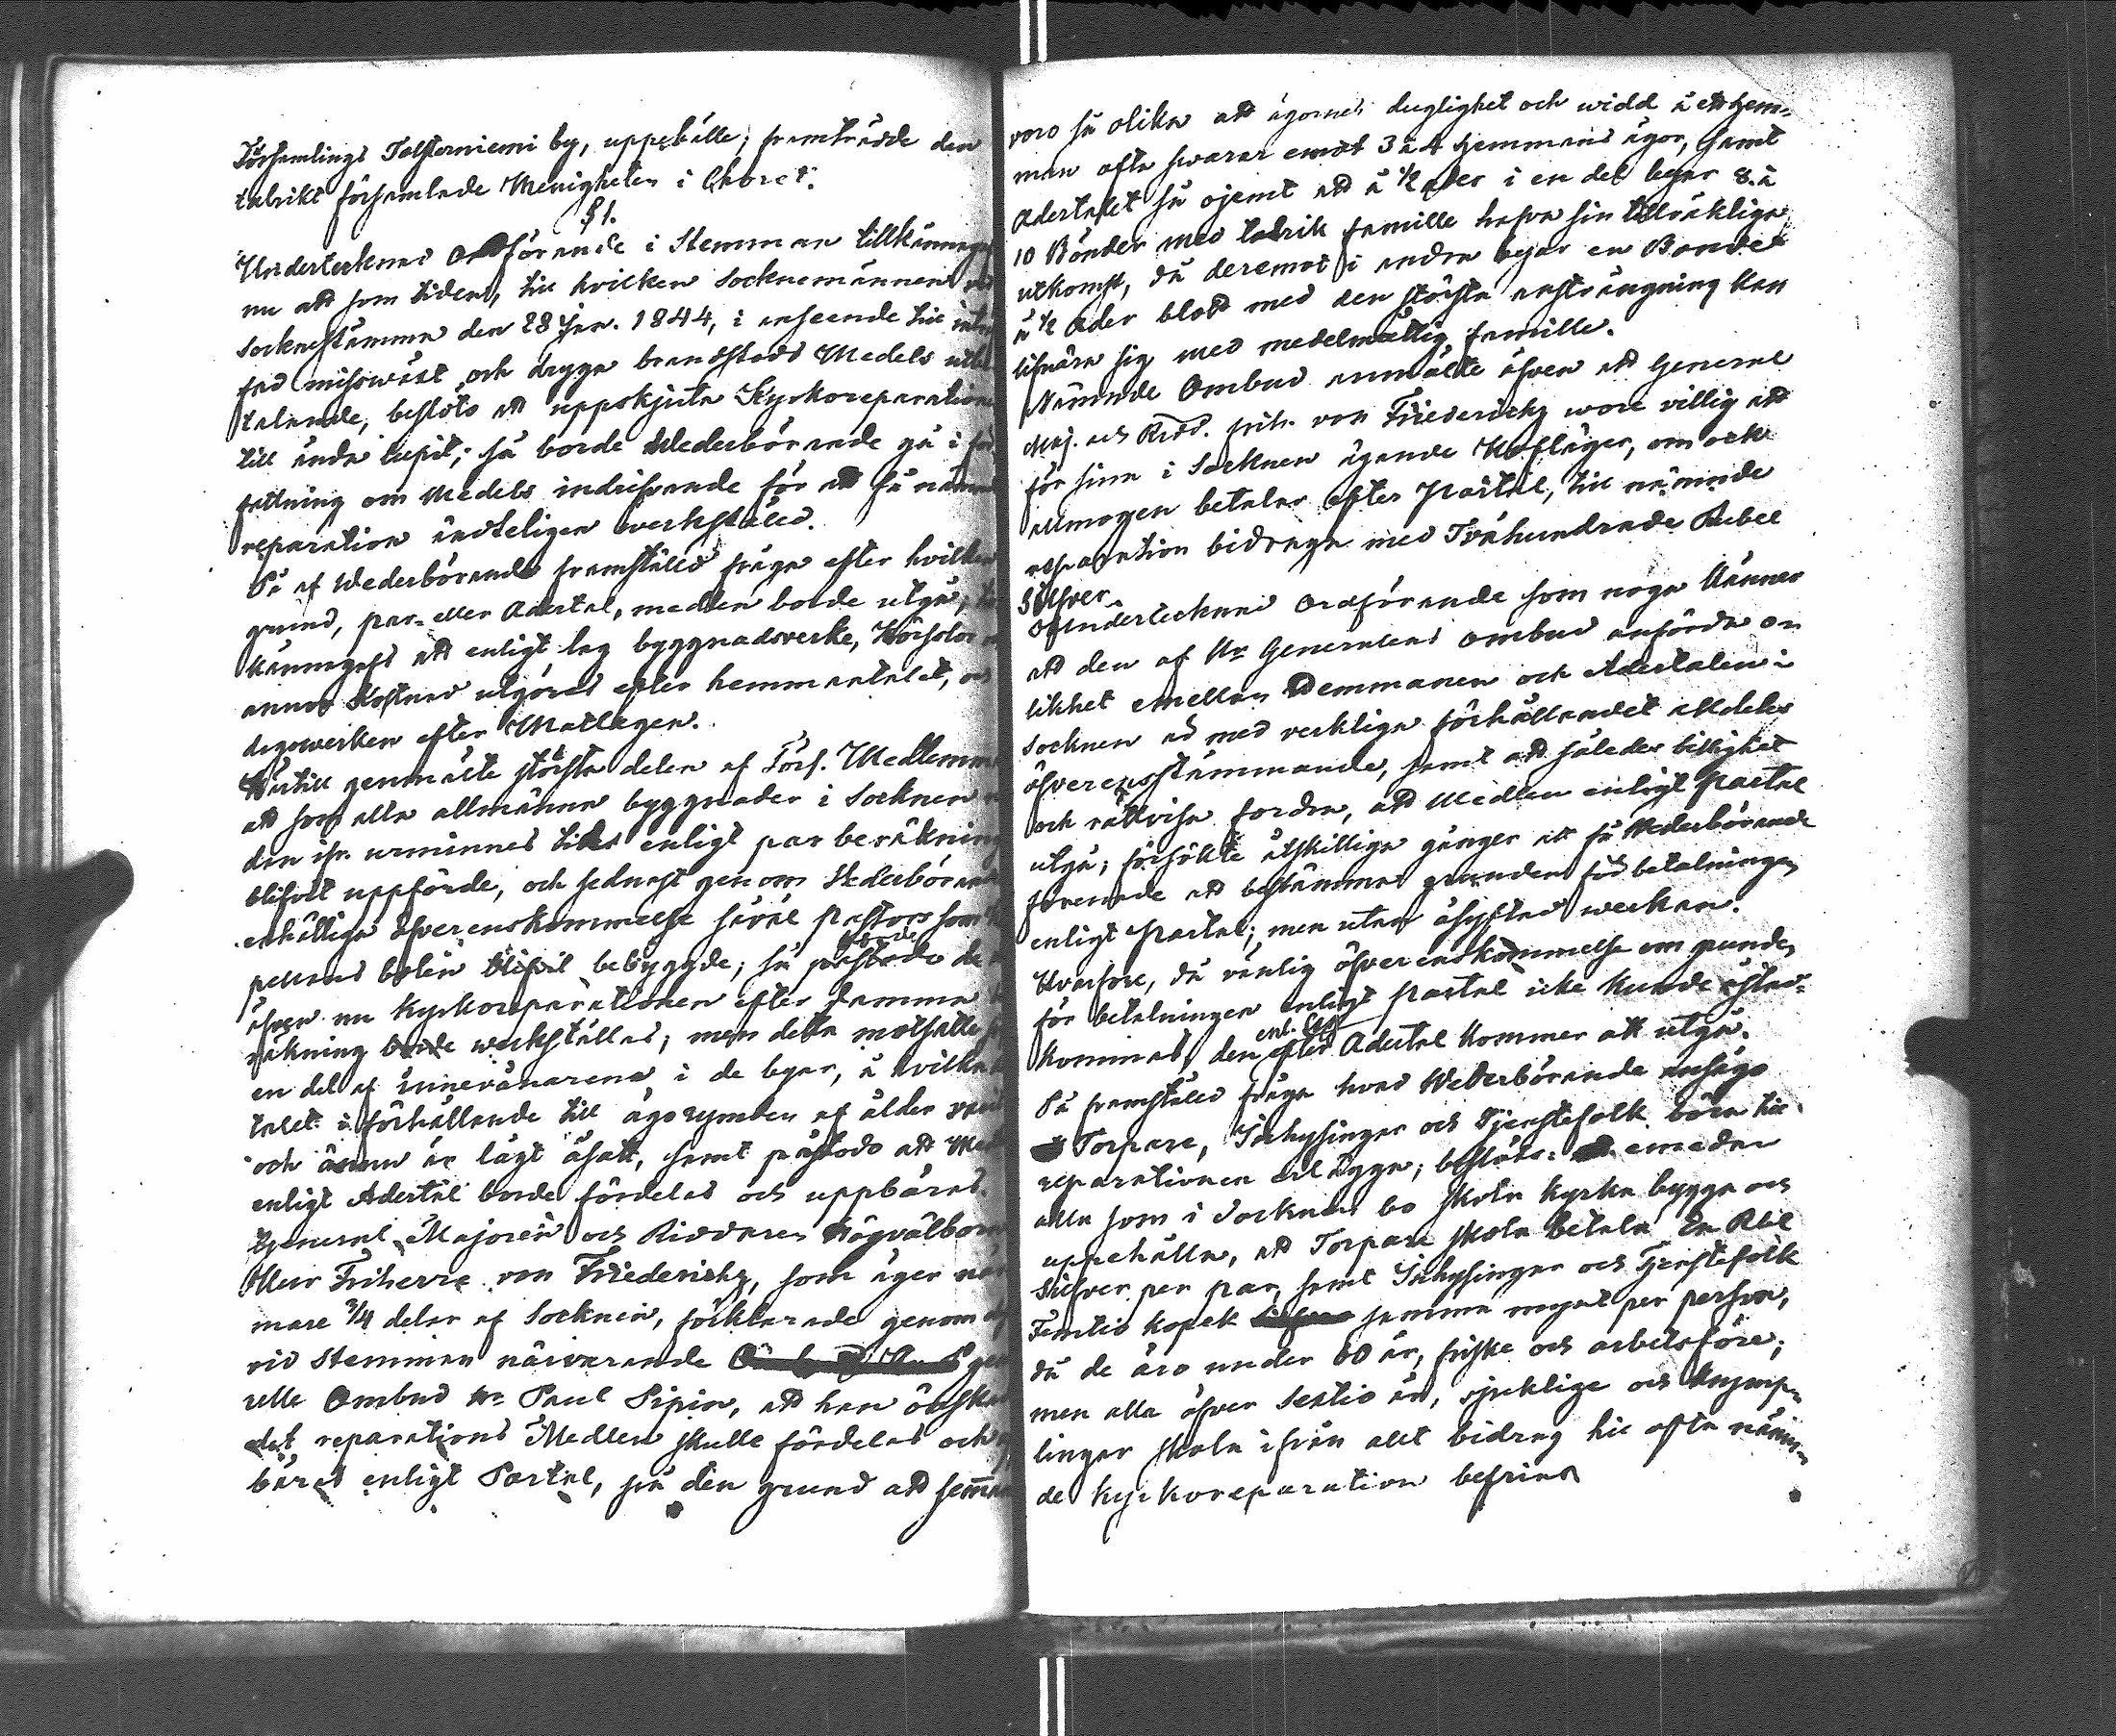 Församlings Tolsterniemi by, uppehälle; framträdde den
talrikt församlade Menigheten i Choret.
§ 1.
Undertecknad Ordförande i Stemman tillkännagaf
nu att som tiden, till hvilken Socknemännen vid
Socknestämma den 28 Jan. 1844, i anseende till
missväxt och dryga brandstods Medels
talande, beslöto att uppskjuta Kyrkoreparationen
till ända lupit; så borde Wederbörande gå i för
fattning om Medels indrifvande för att få nämnde
reparation ändteligen verkställd.
På af Wederbörande framställd fråga efter hvilken
grund, par- eller Adertal, medlen borde utgå, till
kännagafs att enligt lag byggnadsvirke, Körslor och
annan Kostnad utgöres efter hemmantalet, och
dagsverken efter Matlagen.
Härtill genmälte största delen af Förs. Medlemmar
att som alla allmänna byggnader i Socknen
den ifr. urminnes tider enligt par beräkning
blifvit uppförde, och sednast genom Wederbörandes
enhälliga öfverenskommelse såväl pastors som
pellans bolen blifvit bebyggde; så påstodo de
äfven nu Kyrkoreparationen efter samma
räkning borde werkställas; men detta motsatte sig
en del af innevånarena i de byar, i hvilka
talet i förhållande till ägorymden af ålder varit
och ännu är lågt åsatt, samt påstodo att Med
enligt Adertal borde fördelas och uppbäras.
General Majoren och Riddaren Högvälborne
Herr Friherre von Friedericks, som äger när
mare 3/4 delar af Socknen, förklarade genom
vid Stemman närvarande
relle Ombud Hr Paul Pipin, att han önska
det reparations Medlen skulle fördelas och
bäras enligt Partal, på den grund att hemman
voro så olika att ägornes duglighet och widd å ett Hem-
man ofta svarar emot 3 à 4 Hemmans ägor, samt
Adertalet så ojemt att å 1/2 ader i en del byar 8 à
10 Bönder med talrik famille hafva sin tillräckliga
utkomst, då deremot i andra byar en Bonde
å 1/2 Ader blott med den största ansträngning kan
lifnära sig med medelmåttig famille.
Nämnde Ombud anmälte äfven att General
Maj. och Ridd. frih. von Friedericks wore villig att
för sina i Socknen ägande Hofläger, om ock
allmogen betalar efter Partal, till nämnde
reparation bidraga med Tvåhundrade Rubel
Silfver.
Undertecknad Ordförande som noga känner
att den af Hr Generalens Ombud anförda o-
likhet emellan Hemmanen och Adertalen i
Socknen är med verkliga förhållandet alldeles
öfverensstämmande, samt att således billighet
och rättvisa fordra, att Medlen enligt Partal
utgå; försökte åtskilliga gånger att få Wederbörande
förenade att bestämma grunden för betalningen
enligt Partal; men utan åsyftad werkan.
Hvarföre, då vänlig öfverenskommelse om grunden
för betalningen enligt Partal icke kunde åstad-
kommas, den enl. lag efter Adertal kommer att utgå.
På framställd fråga hvad Wederbörande ansågo
Torpare, Inhysingar och Tjenstefolk böra till
reparationen erlägga; beslöts: emedan
alla som i Socknen bo skola Kyrka bygga och
uppehålla, att Torpare skola betala En Rbl
Silfver per par, samt Inhysingar och Tjenstefolk
Femtio kopek samma mynt per person,
då de äro under 60 år, friske och arbetsföre;
men alla öfver Sextio år, sjuklige och Krymp-
lingar skola ifrån allt bidrag till ofta nämn-
de Kyrkoreparation befrias